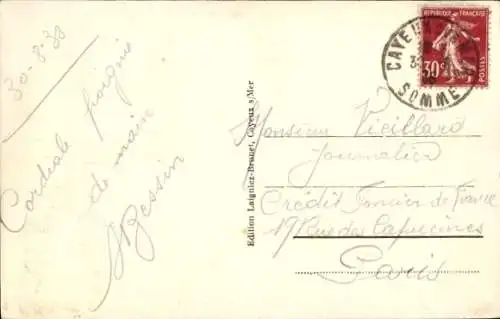 30-8-38
Cordiale poignée
de main
Bessin
Edition Laigniez-Brunet, Cayeux s/Mer
REPUBLIQUE FRANÇAISE
30c
POSTES
CAYEUX
SOMME
Monsieur Vieillard
Journalier
Crédit Foncier de France
19 Rue des Capucines
Paris